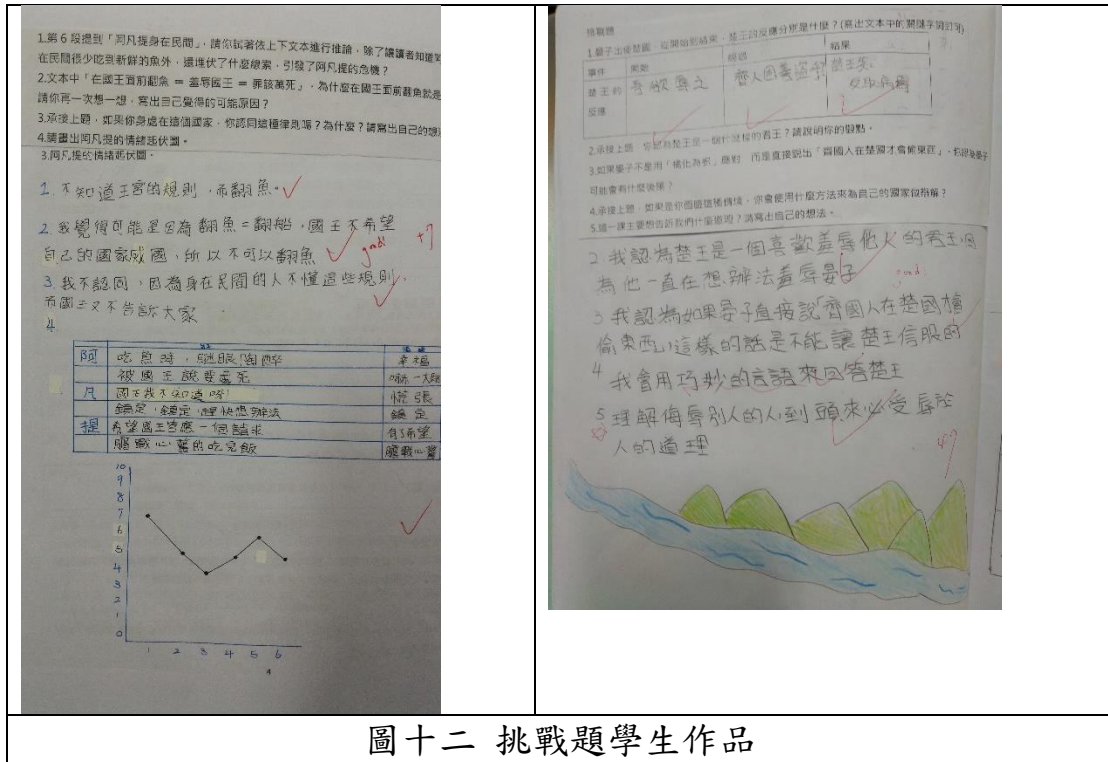 1.第6段提到「阿凡提身在民間」，請你試著依上下文本進行推論，除了讓讀者知道
在民間很少吃到新鮮的魚外，還埋伏了什麼線索，引發了阿凡提的危機？
2.文本中「在國王面前翻魚 = 羞辱國王 = 罪該萬死」，為什麼在國王面前翻魚就是
請你再一次想一想，寫出自己覺得的可能原因？
3.承接上題，如果你身處在這個國家，你認同這種律則嗎？為什麼？請寫出自己的想
4.請畫出阿凡提的情緒起伏圖。
3.阿凡提的情緒起伏圖。
1. 不知道王宮的規則，而翻魚。
2. 我覺得可能是因為翻魚=翻船，國王不希望
自己的國家滅國，所以不可以翻魚
good!
+7
3. 我不認同，因為身在民間的人不懂這些規則，
而國王又不告訴大家
4
阿 吃魚時，瞇眼陶醉 幸福
被國王說要處死
凡 國王我不知道呀! 慌張
鎮定，鎮定，趕快想辦法 鎮定
提 希望國王答應一個請求 有希望
膽戰心驚的吃完飯 膽戰心驚
10
9
8
7
6
5
4
3
2
1
0
1 2 3 4 5 6
挑戰題
1.晏子出使楚國，從開始到結果，楚王的反應分別是什麼？(寫出文本中的關鍵字詞即可)
事件 開始 經過 結果
楚王的 吾欲辱之 齊人固善盜乎 楚王笑
反應 反取病焉
2.承接上題，你認為楚王是一個什麼樣的君王？請說明你的觀點。
3.如果晏子不是用「橘化為枳」應對，而是直接說出「齊國人在楚國才會偷東西」，你認為晏子
可能會有什麼後果？
4.承接上題，如果是你面臨這種情境，你會使用什麼方法來為自己的國家做辯解？
5.這一課主要想告訴我們什麼道理？請寫出自己的想法。
2. 我認為楚王是一個喜歡羞辱他人的君王因
為他一直在想辦法羞辱晏子
good!
3 我認為如果晏子直接說「齊國人在楚國
偷東西」這樣的話是不能讓楚王信服的
4 我會用巧妙的言語來回答楚王
5 理解侮辱別人的人到頭來必受辱於
人的道理
圖十二 挑戰題學生作品